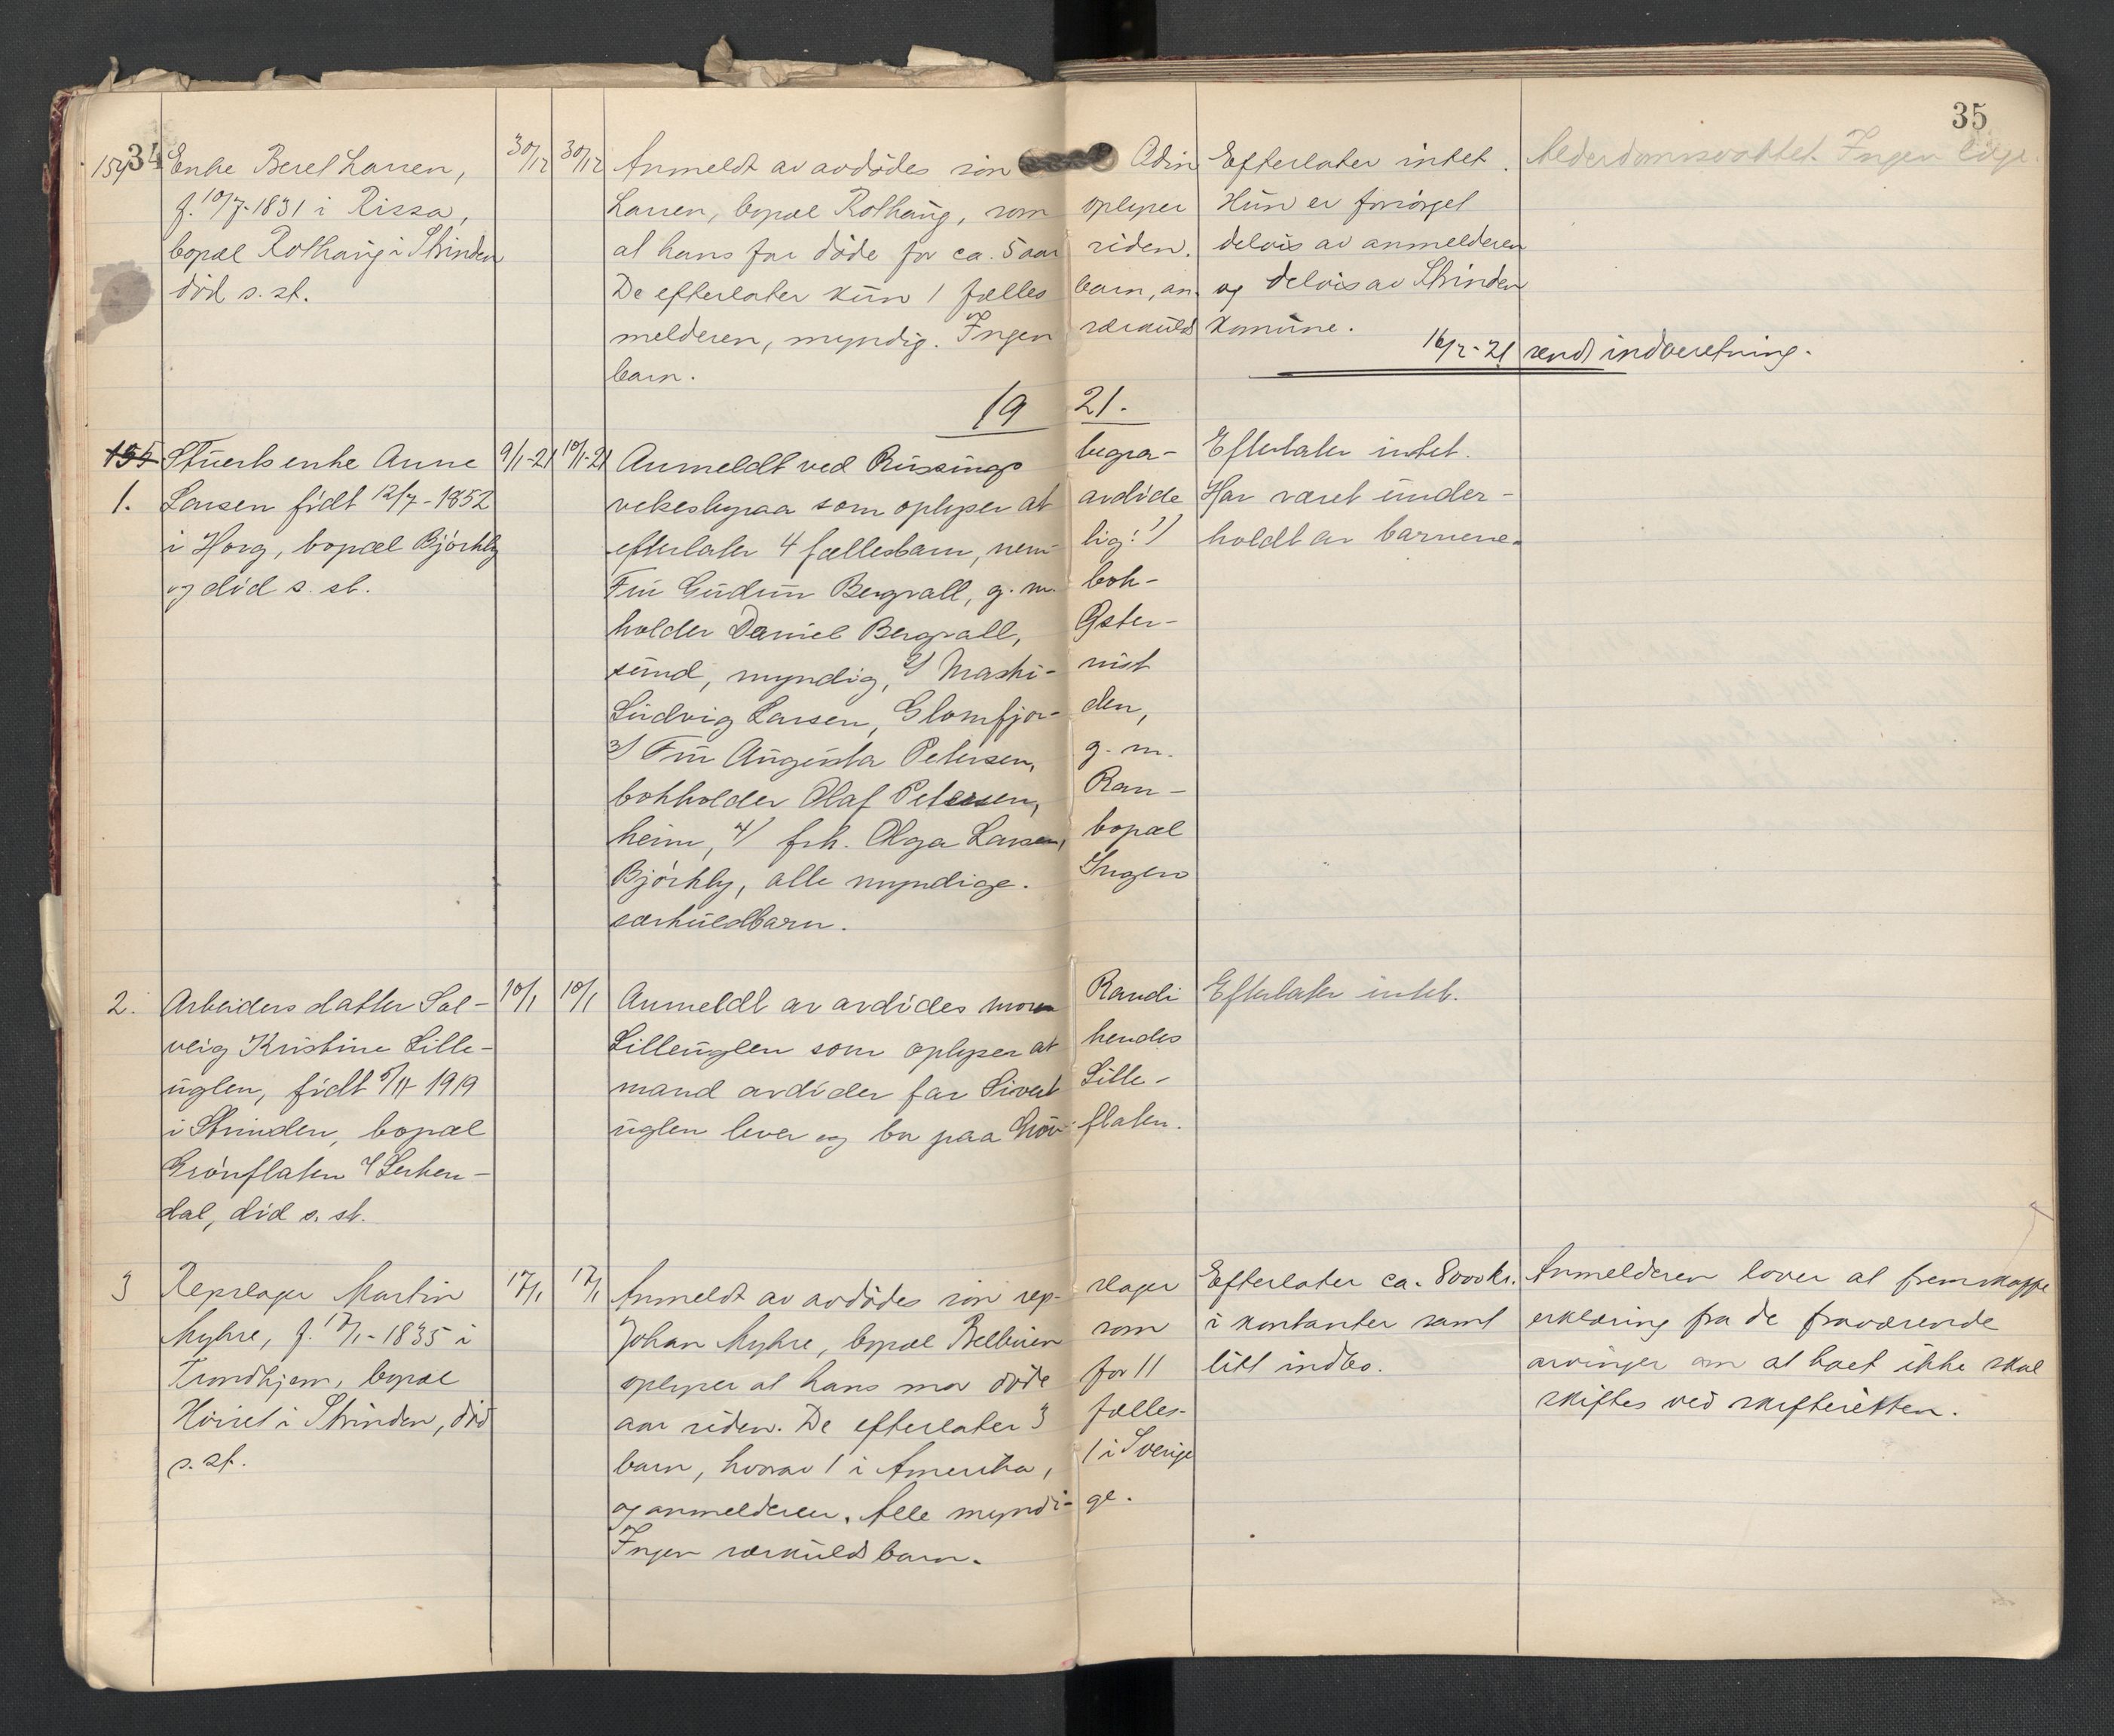 34
35
154 Enke Beret Larsen, 30/12 30/12 Anmeldt av avdødes søn Odin Efterlater intet. Alderdomssvakhet. Ingen læge.
f. 10/7-1831 i Rissa, Larsen, bopæl Rothaug, som oplyser Hun er forsørget
bopæl Rothaug i Strinden at hans far døde for ca. 5 aar siden. delvis av anmelderen
død s. st. De efterlater kun 1 fælles barn, an- og delvis av Strinden
melderen, myndig. Ingen særkulds komune.
barn. 16/2-21 sendt indberetning.
1921.
155 Stuerts enke Anne 9/1-21 10/1-21 Anmeldt ved Russings begra- Efterlater intet.
1. Larsen født 12/7-1852 velsesbyraa som oplyser at avdøde Har været under-
i Horg, bopæl Björkly efterlater 4 fællesbarn, nem- lig: 1/ holdt av barnene.
og død s. st. Fru Gudrun Bergvall, g. m. bok-
holder Daniel Bergvall, Øster-
sund, myndig, 2/ Maski- nist
Ludvig Larsen, Glomfjor- den,
3/ Fru Augusta Petersen, g. m.
bokholder Olaf Petersen, Ran-
heim, 4/ frk. Olga Larsen, bopæl
Björkly, alle myndige. Ingen
særkuldbarn.
2. Arbeiders datter Sol- 10/1 10/1 Anmeldt av avdødes mor Randi Efterlater intet.
veig Kristine Lille- Lilleuglen som oplyser at hendes
uglen, født 5/11-1919 mand avdødes far Sivert Lille-
i Strinden, bopæl uglen lever og bor paa Grøn- flaten.
Grönflaten Lerken-
dal, død s. st.
3 Repslager Martin 17/1 17/1 Anmeldt av avdødes søn rep- slager Efterlater ca. 8000 kr. Anmelderen lover at fremskaffe
Myhre, f. 17/1-1835 i Johan Myhre, bopæl Belbuen som i kontanter samt erklæring fra de fraværende
Trondhjem, bopæl oplyser at hans mor døde for 11 litt indbo. arvinger om at boet ikke skal
i Strinden, død aar siden. De efterlater 3 fælles- skiftes ved skifteretten.
s. st. barn, hvorav 1 i Amerika, 1 i Sverige
og anmelderen. Alle myndi- ge.
Ingen særkulds barn.